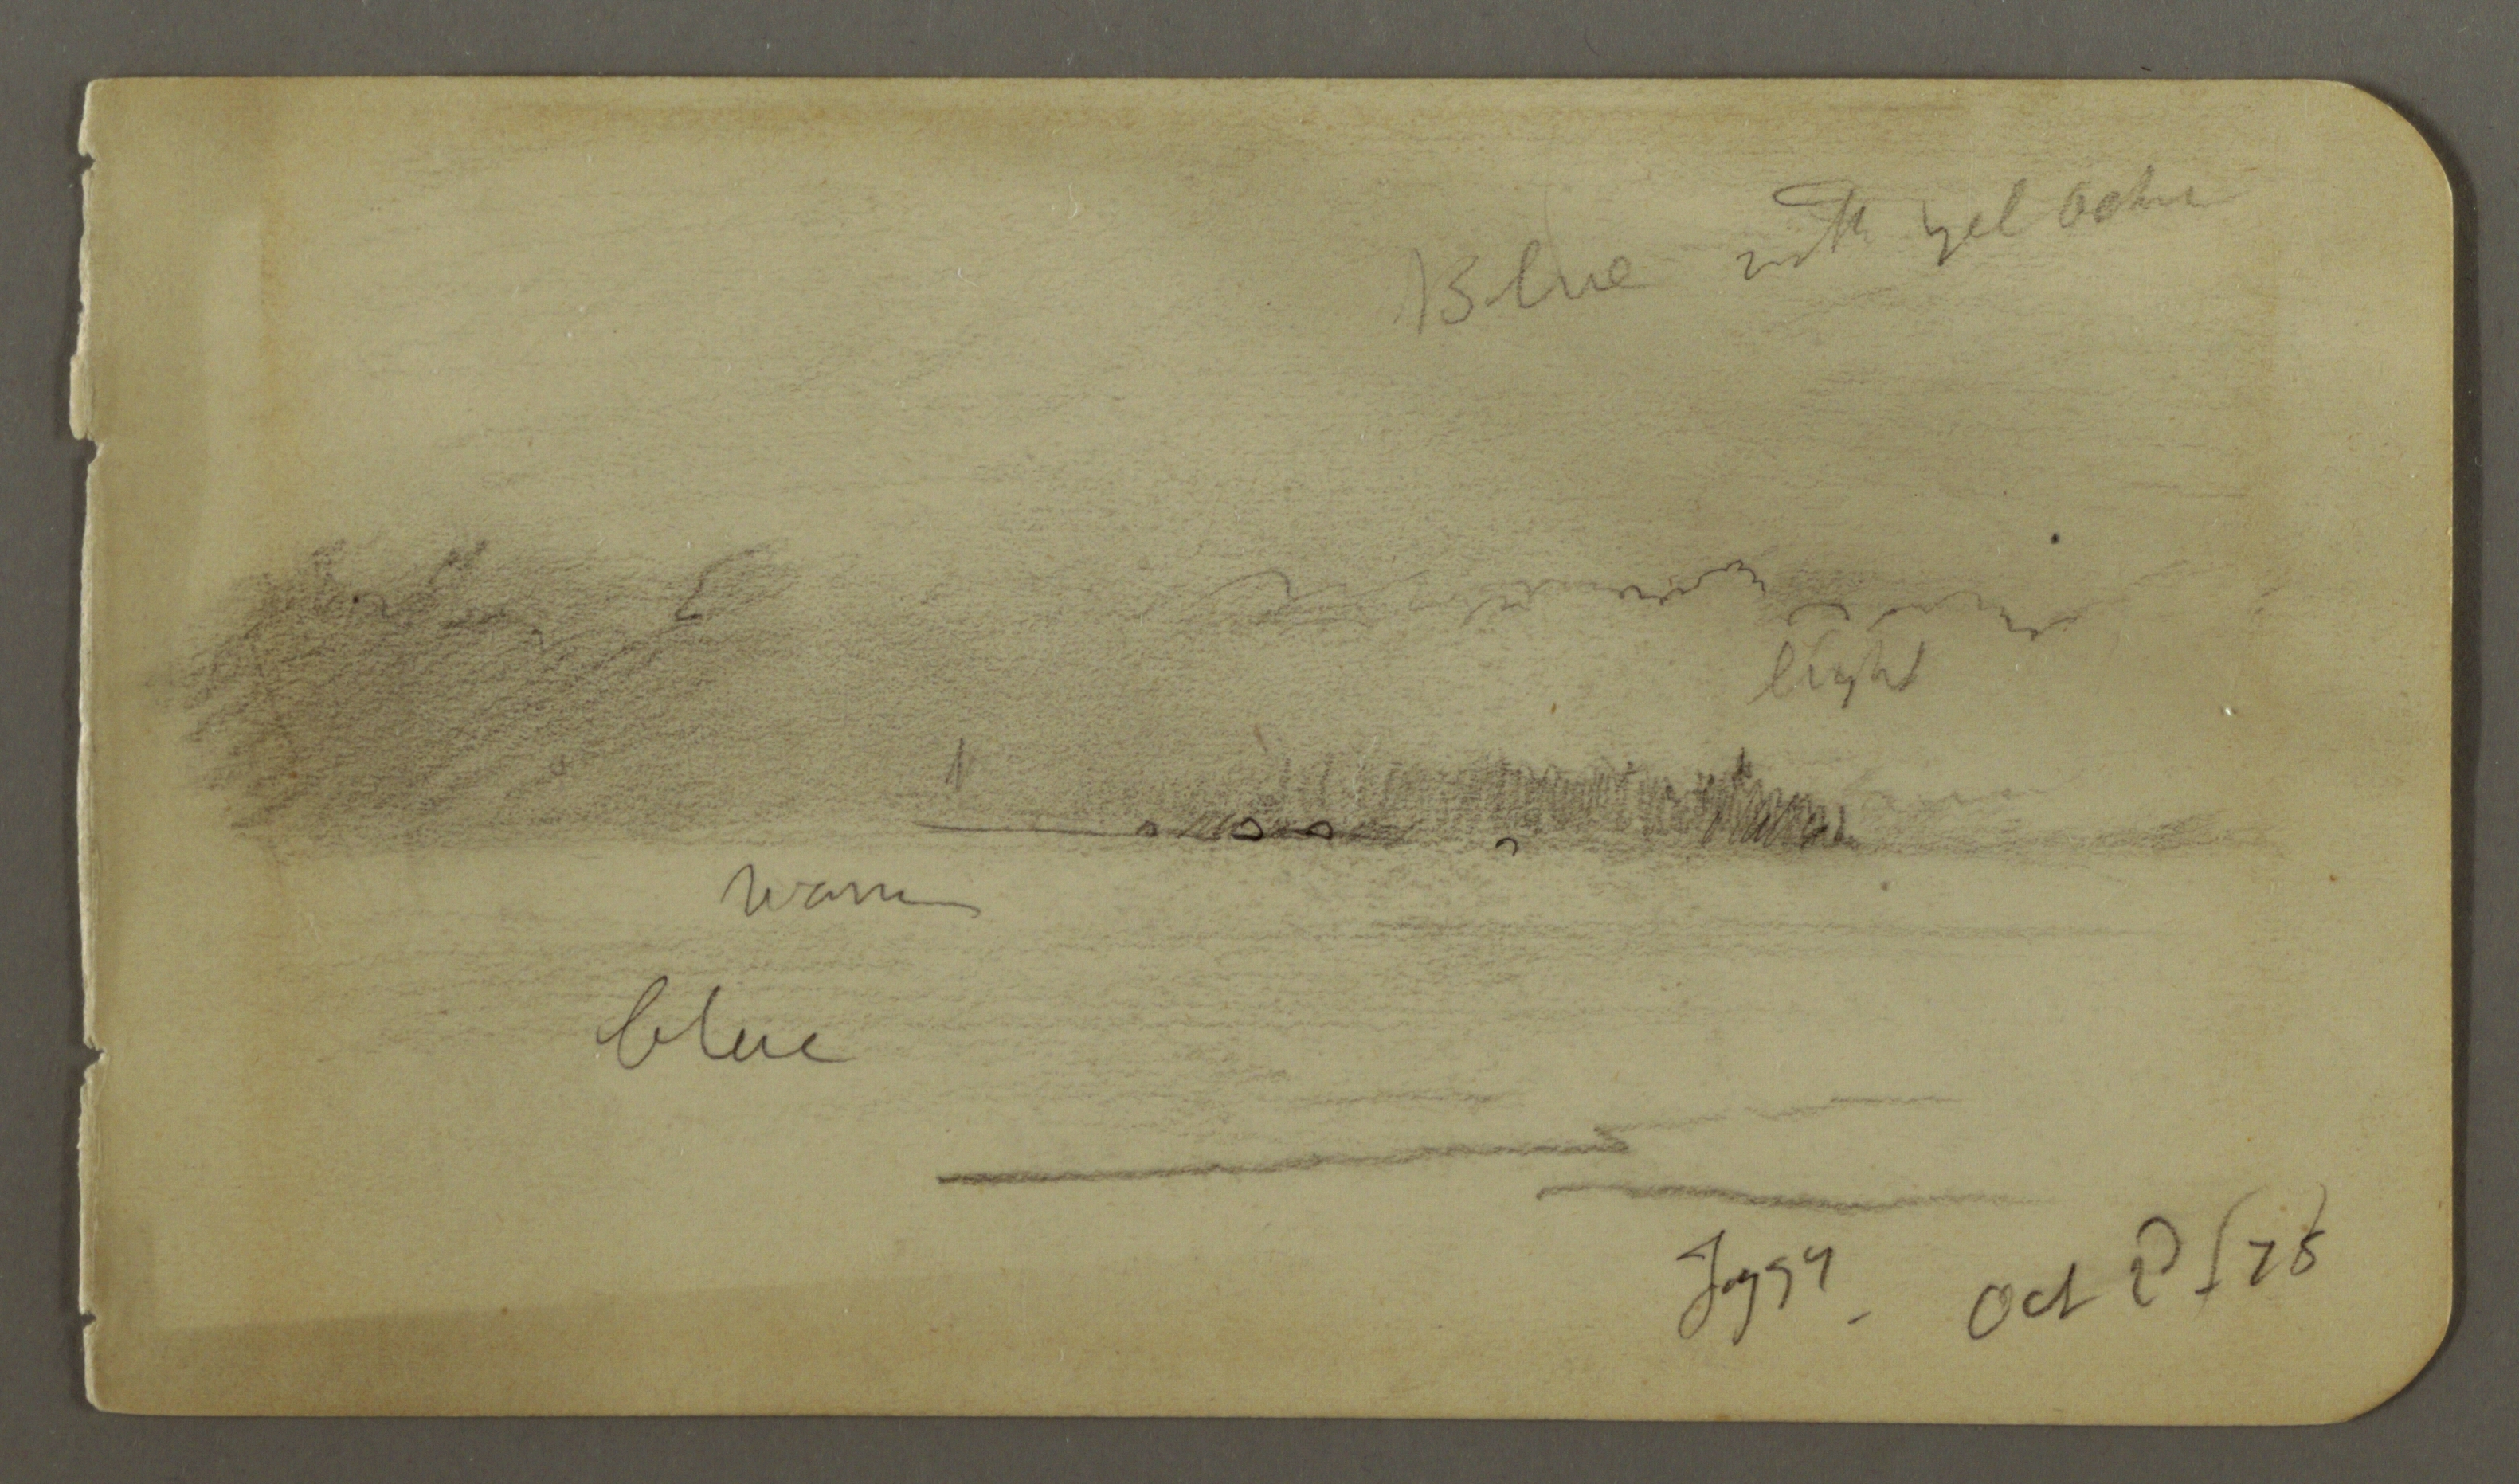 Blue with yel ochre
light
warm
blue
Foggy - Oct